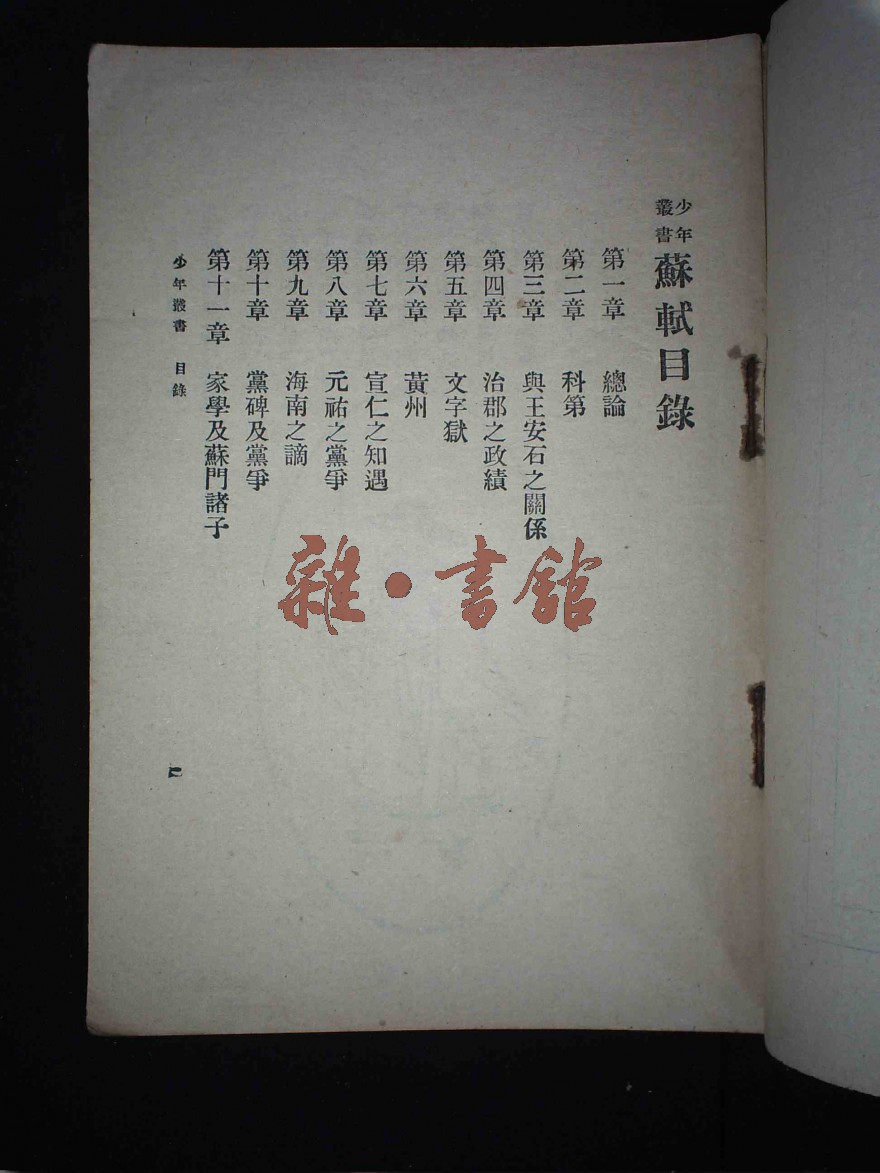 少年叢書 蘇軾目錄
第一章 總論
第二章 科第
第三章 與王安石之關係
第四章 治郡之政績
第五章 文字獄
第六章 黃州
第七章 宣仁之知遇
第八章 元祐之黨爭
第九章 海南之謫
第十章 黨碑及黨爭
第十一章 家學及蘇門諸子
少年叢書 目錄
一
雜·書館